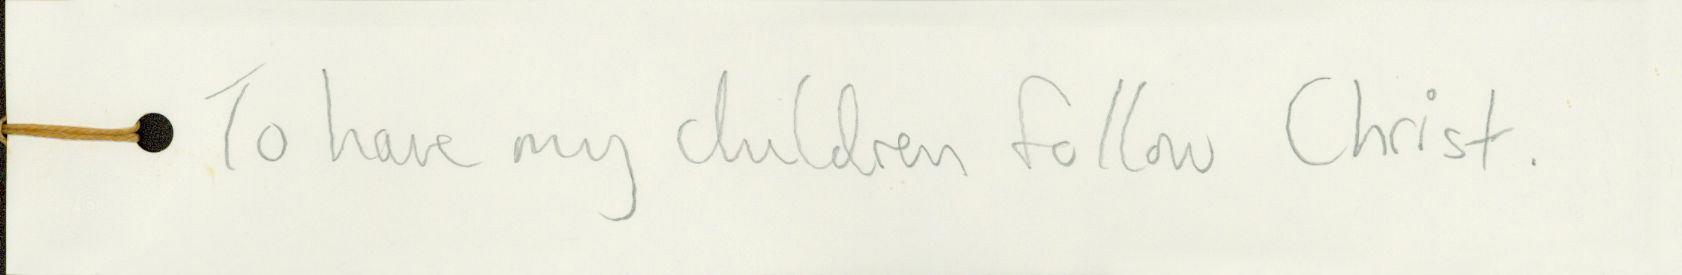 To have my children follow Christ.